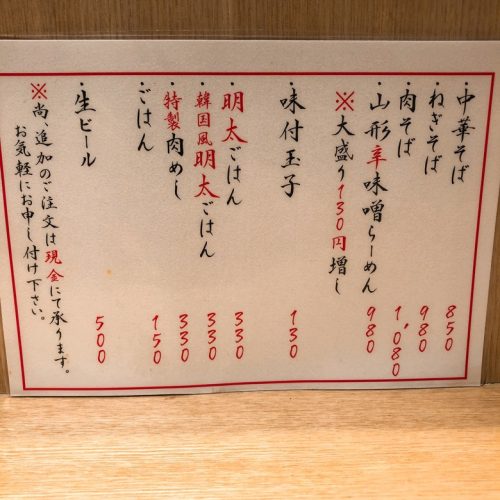 ・中華そば 850
・ねぎそば 980
・肉そば 1,080
・山形辛味噌らーめん 980
※大盛り130円増し
・味付玉子 130
・明太ごはん 330
・韓国風明太ごはん 330
・特製肉めし 330
・ごはん 150
・生ビール 500
※尚、追加のご注文は現金にて承ります。
お気軽にお申し付け下さい。